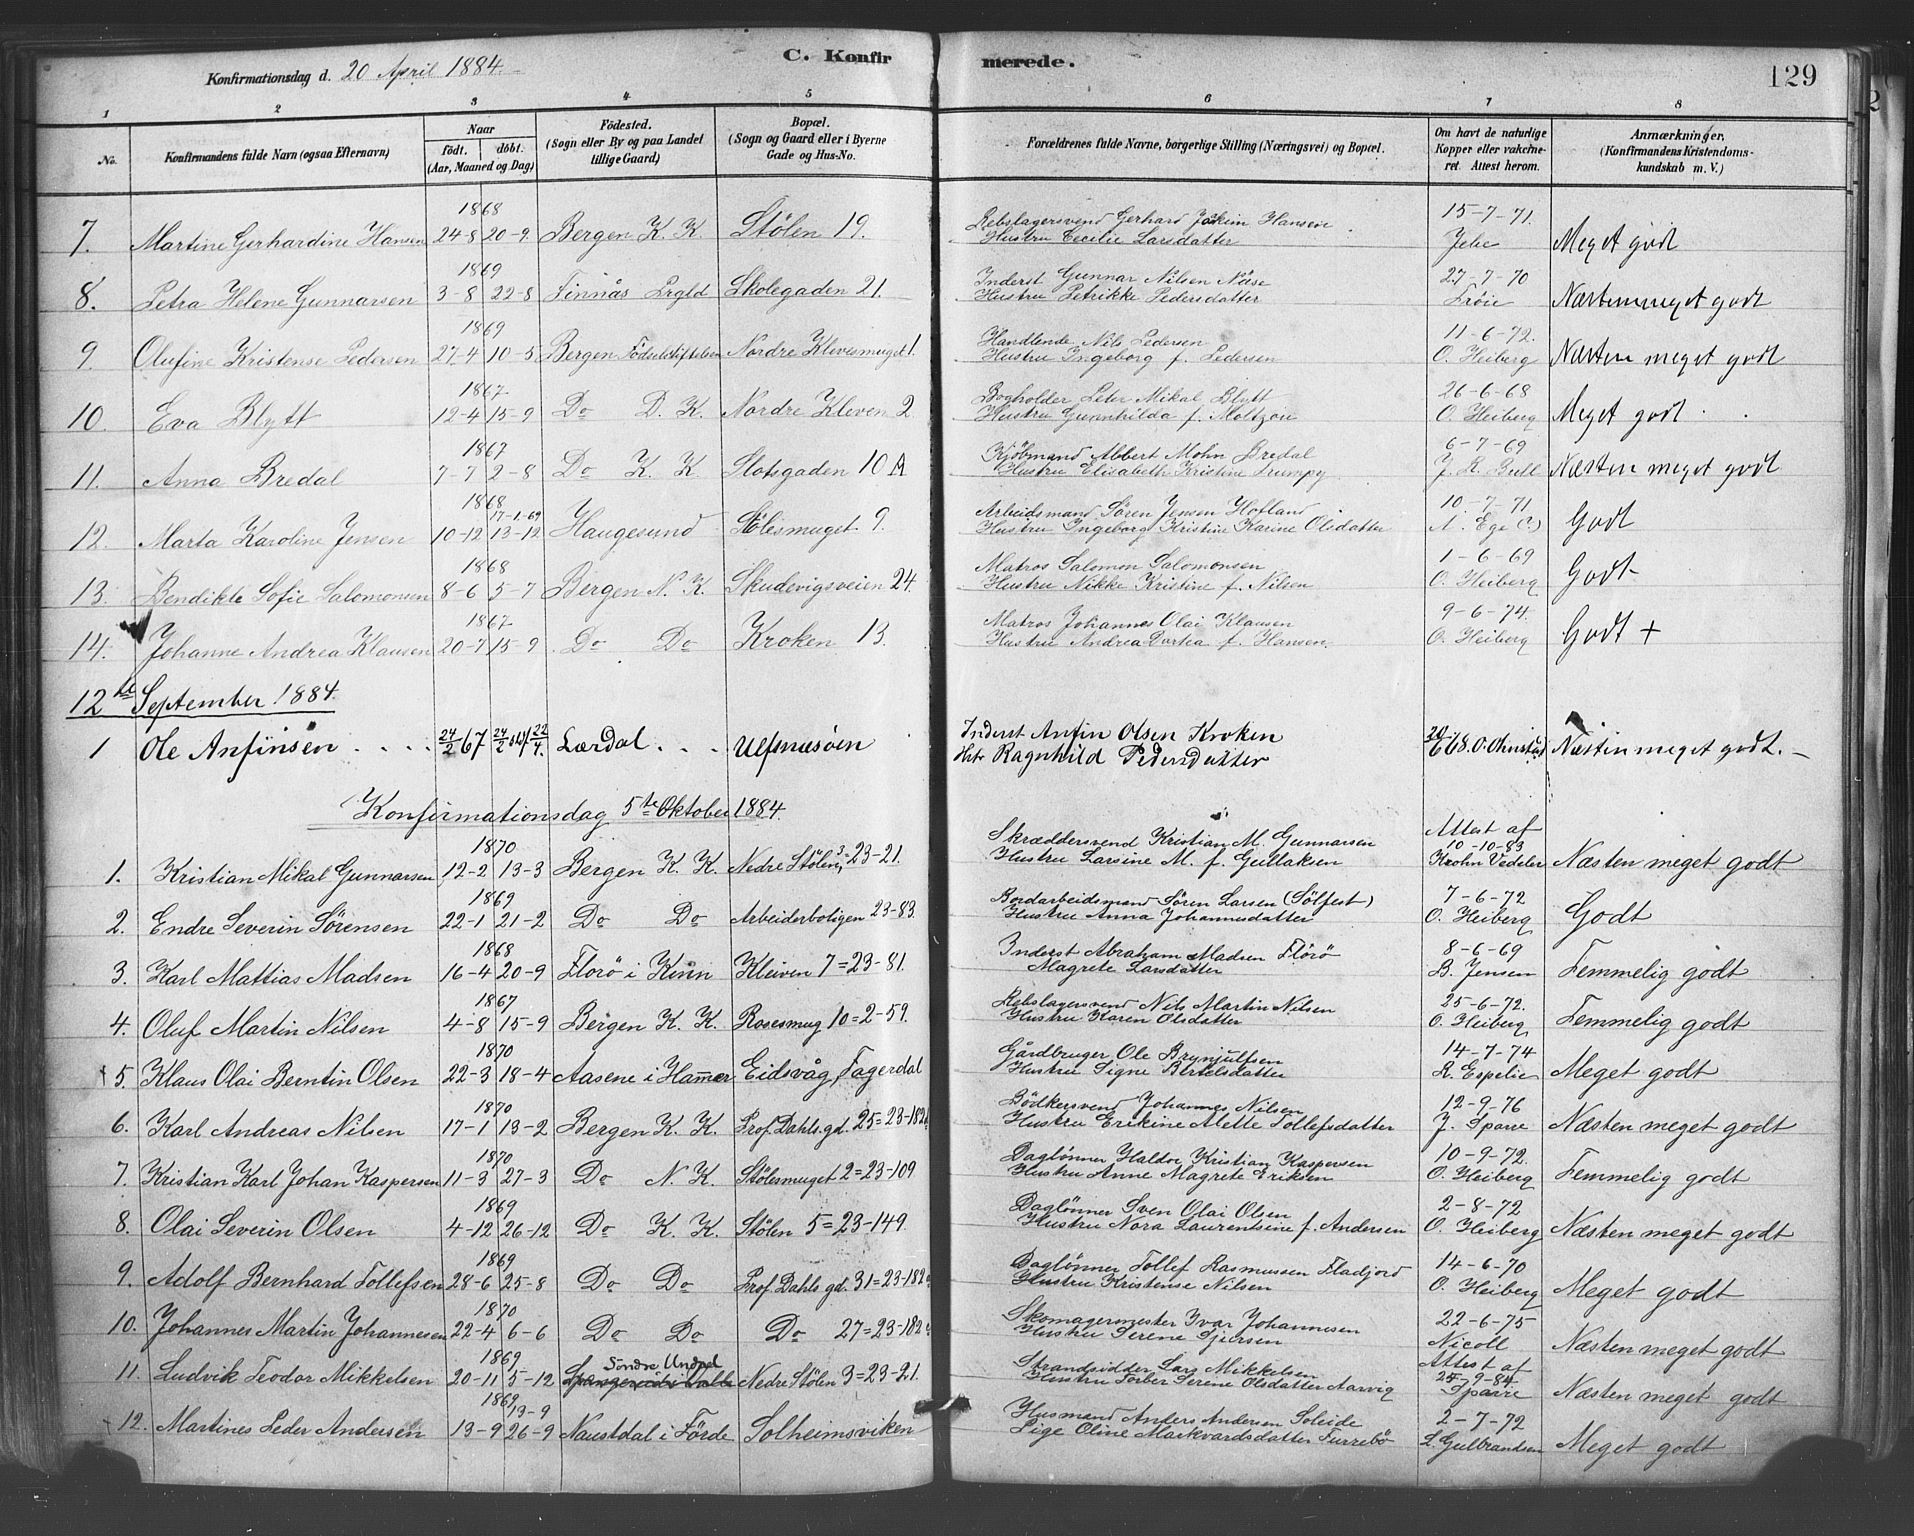 Konfirmationsdag d. 20 April 1884.
C. Konfirmerede.
129
1 2 3 4 5 6 7 8
No.
Konfirmandens fulde Navn (ogsaa Efternavn)
Naar
födt. döbt.
(Aar, Maaned og Dag)
Födested.
(Sogn eller By og paa Landet
tillige Gaard)
Bopæl.
(Sogn og Gaard eller i Byerne
Gade og Hus-No.
Forældrenes fulde Navne, borgerlige Stilling (Næringsvei) og Bopæl.
Om havt de naturlige
Kopper eller vakcine-
ret. Attest herom.
Anmærkninger.
(Konfirmandens Kristendoms-
kundskab m. V.)
1868
7. Martine Gerhardine Hansen 24-8 20-9. Bergen K. K Stölen 19. Rebslagersvend Gerhard Joakim Hansen 15-7-71.
Hustru Cecilie Larsdatter Meget godt
1869
8. Petra Helene Gunnarsen 3-8 22-8 Finnås Prgld Skolegaden 21. Inderst Gunnar Nilsen Näse 27-7-70
Hustru Petrikke Pedersdatter Fröie Næsten meget godt
1869
9. Olufine Kristense Pedersen 27-4 10-5 Bergen Födselstiftelsen Nordre Klevesmuget 1. Handlende Nils Pedersen 11-6-72.
Hustru Ingeborg f. Pedersen O. Heiberg Næsten meget godt
1867
10. Eva Blytt 12-4 15-9 Do D. K. Nordre Kleven 2 Bogholder Peter Mikal Blytt 26-6-68
Hustru Gunnhilda f. Moltzau O. Heiberg Meget godt
1867
11. Anna Bredal 7-7 2-8 Do K. K Slotsgaden 10 A Kjöbmand Albert Mohn Bredal 6-7-69
Hustru Elisabeth Kristine Trumpy J. R. Bull Næsten meget godt
1868
17-1-69
12. Marta Karoline Jensen 10-12 13-12 Haugesund Stölesmuget 9. Arbeidsmand Sören Jensen Hofland 10-7-71
Hustru Ingeborg Kristine Karine Olsdatter A. Ege Godt
1868
13. Bendikte Sofie Salomonsen 8-6 5-7 Bergen N. K. Skudevigsveien 24. Matros Salomon Salomonsen 1-6-69
Hustru Nikke Kristine f. Nilsen O. Heiberg Godt
1867
14. Johanne Andrea Klausen 20-7 15-9 Do Do Kroken 13. Matros Johannes Olai Klausen 9-6-74.
Hustru Andrea Dortea f. Hansen. O. Heiberg Godt +
12te September 1884.
1 Ole Anfinsen 24/2 67 24/2 22/4. Lærdal Ulfsnæsöen Inderst Anfin Olsen Kroken
Htr Ragnhild Pedersdatter Næsten meget godt.
Konfirmationsdag 5te Oktober 1884.
1870
1. Kristian Mikal Gunnarsen 12-2 13-3 Bergen K. K. Nedre Stölen 3-23-21. Skræddersvend Kristian M. Gunnarsen Attest af
10-10-83
Hustru Larsine M. f. Gullaksen Krohn Vedeler Næsten meget godt
1869
2. Endre Severin Sörensen 22-1 21-2 Do Do Arbeiderboligen 23-83. Bordarbeidsmand Sören Larsen (Sölfest) 7-6-72
Hustru Anna Johannesdatter O. Heiberg Godt
1868
3. Karl Mattias Madsen 16-4 20-9 Florö i Kinn Kleiven 7=23-81. Inderst Abraham Madsen Florö 8-6-69
Magrete Larsdatter B. Jensen Temmelig godt
1867
4. Oluf Martin Nilsen 4-8 15-9 Bergen K. K. Rosesmug 10=2-59. Rebslagersvend Nils Martin Nilsen 25-6-72.
Hustru Karen Olsdatter O. Heiberg Temmelig godt
1870
5. Klaus Olai Berntin Olsen 22-3 18-4 Aasene i Hammer Eidsvåg, Fagerdal Gårdbruger Ole Brynjulfsen 14-7-74
Hustru Signe Bertelsdatter R. Espelie Meget godt
1870
6. Karl Andreas Nilsen 17-1 13-2 Bergen K. K. Prof. Dahls gd. 25=23-182 Bödkersvend Johannes Nilsen 12-9-76
Hustru Erikine Alette Tollefsdatter J. Sparre Næsten meget godt
1870
7. Kristian Karl Johan Kaspersen 11-3 27-3 Do N. K. Stölesmuget 2=23-109 Daglönner Haldor Kristian Kaspersen 10-9-72.
Hustru Anne Magrete Eriksen O. Heiberg Temmelig godt
1869
8. Olai Severin Olsen 4-12 26-12 Do K. K. Stölen 5=23-149. Daglönner Sven Olai Olsen 2-8-72
Hustru Nora Laurentsine f. Andersen O. Heiberg Næsten meget godt
1869
9. Adolf Bernhard Tollefsen 28-6 25-8 Do Do Prof. Dahls gd. 31=23-182 Daglönner Tollef Rasmussen Fladjord 14-6-70
Hustru Kristense Nilsen O. Heiberg Meget godt
1870
10. Johannes Martin Johannesen 22-4 6-6 Do Do Do 27=23-182 Skomagermester Ivar Johannesen 22-6-75
Hustru Serene Sjursen Nicoll Næsten meget godt
1869
Söndre Undal
11. Ludvik Teodor Mikkelsen 20-11 5-12 Nedre Stölen 3=23-21. Strandsidder Lars Mikkelsen Attest af
25-9-84
Hustru Torber Serene Olsdatter Aarvig Sparre Næsten meget godt
1869
13-9
12. Martines Peder Andersen 13-9 26-9 Naustdal i Förde Solheimsviken Husmand Anders Andersen Soleide 2-7-72
Pige Oline Markvardsdatter Furrebö L. Gulbrandsen Meget godt